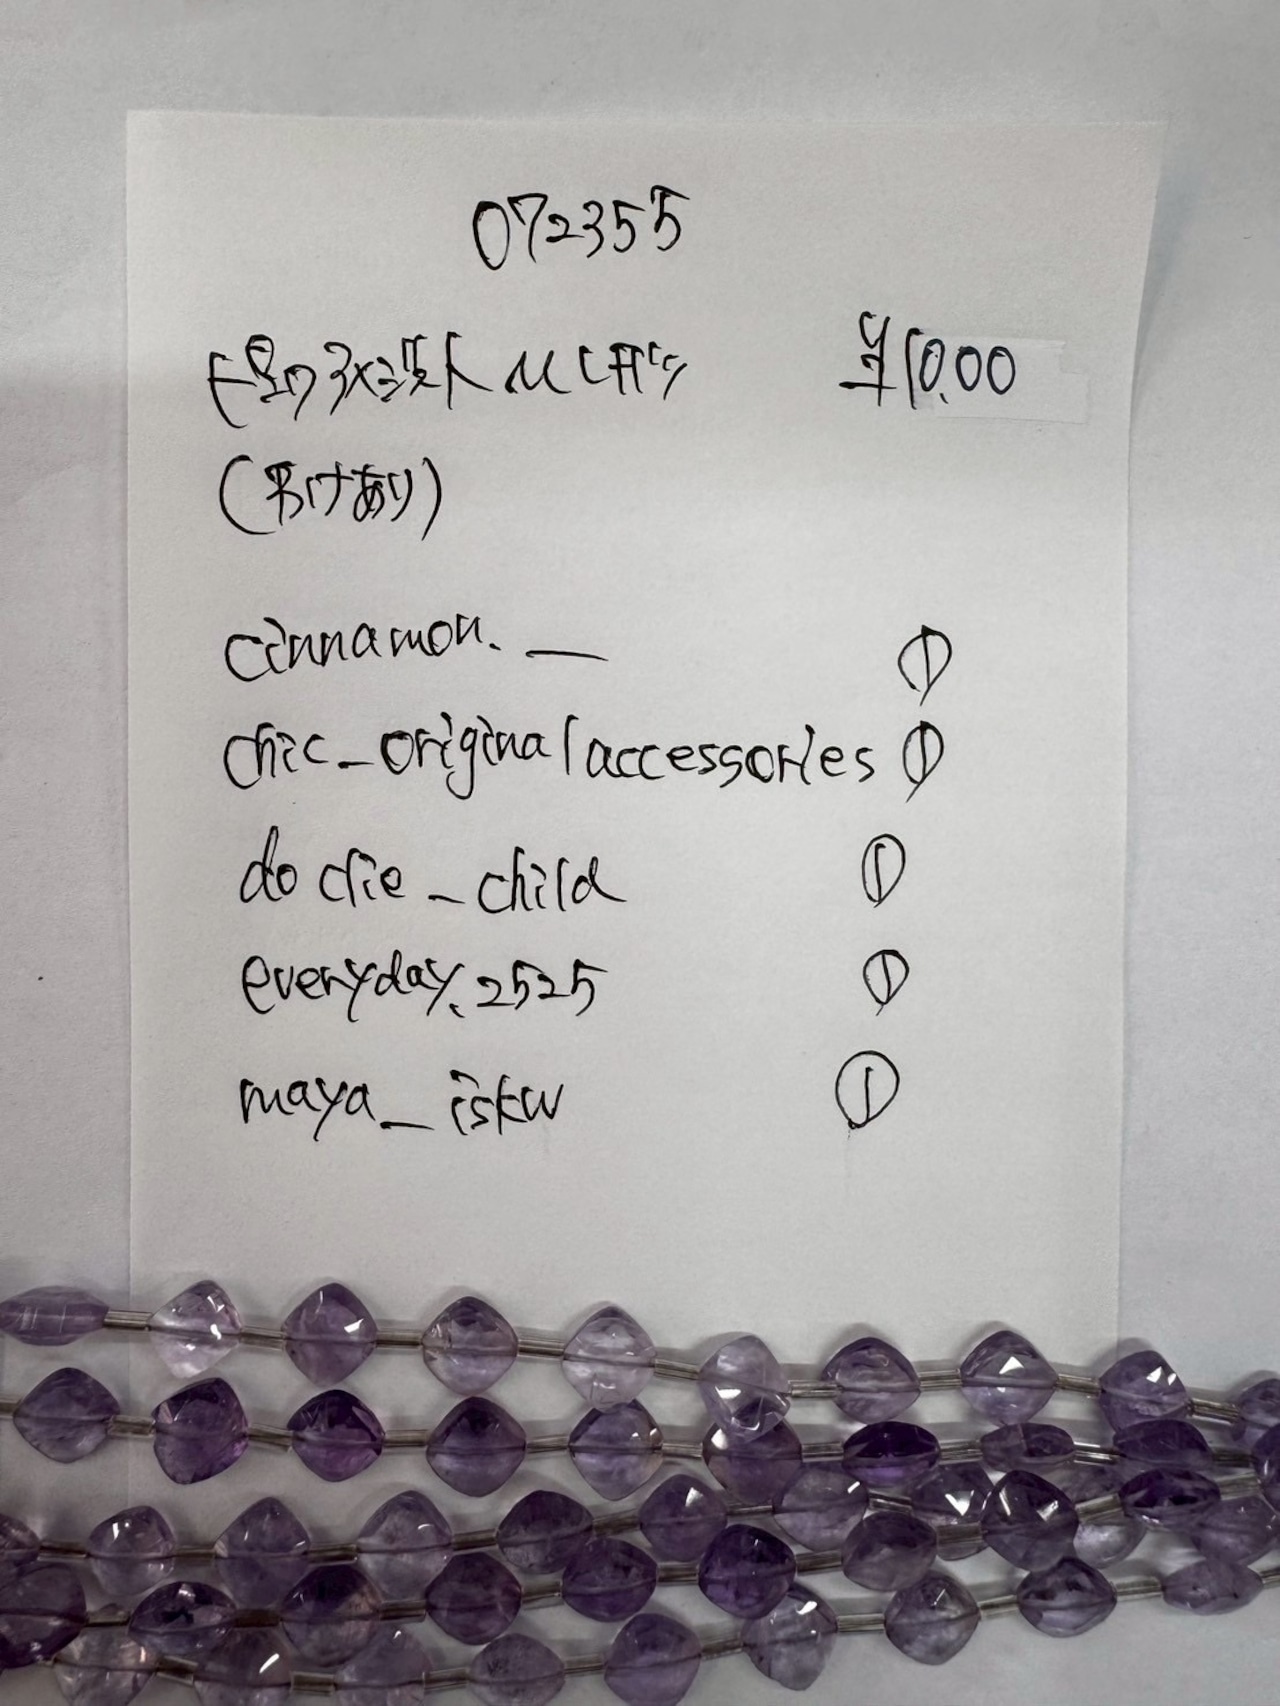 072355
¥10.00
(訳けあり)
cinnamon._ ①
chic_originalaccessories ①
doclie_child ①
everyday.2525 ①
maya_iskw ①